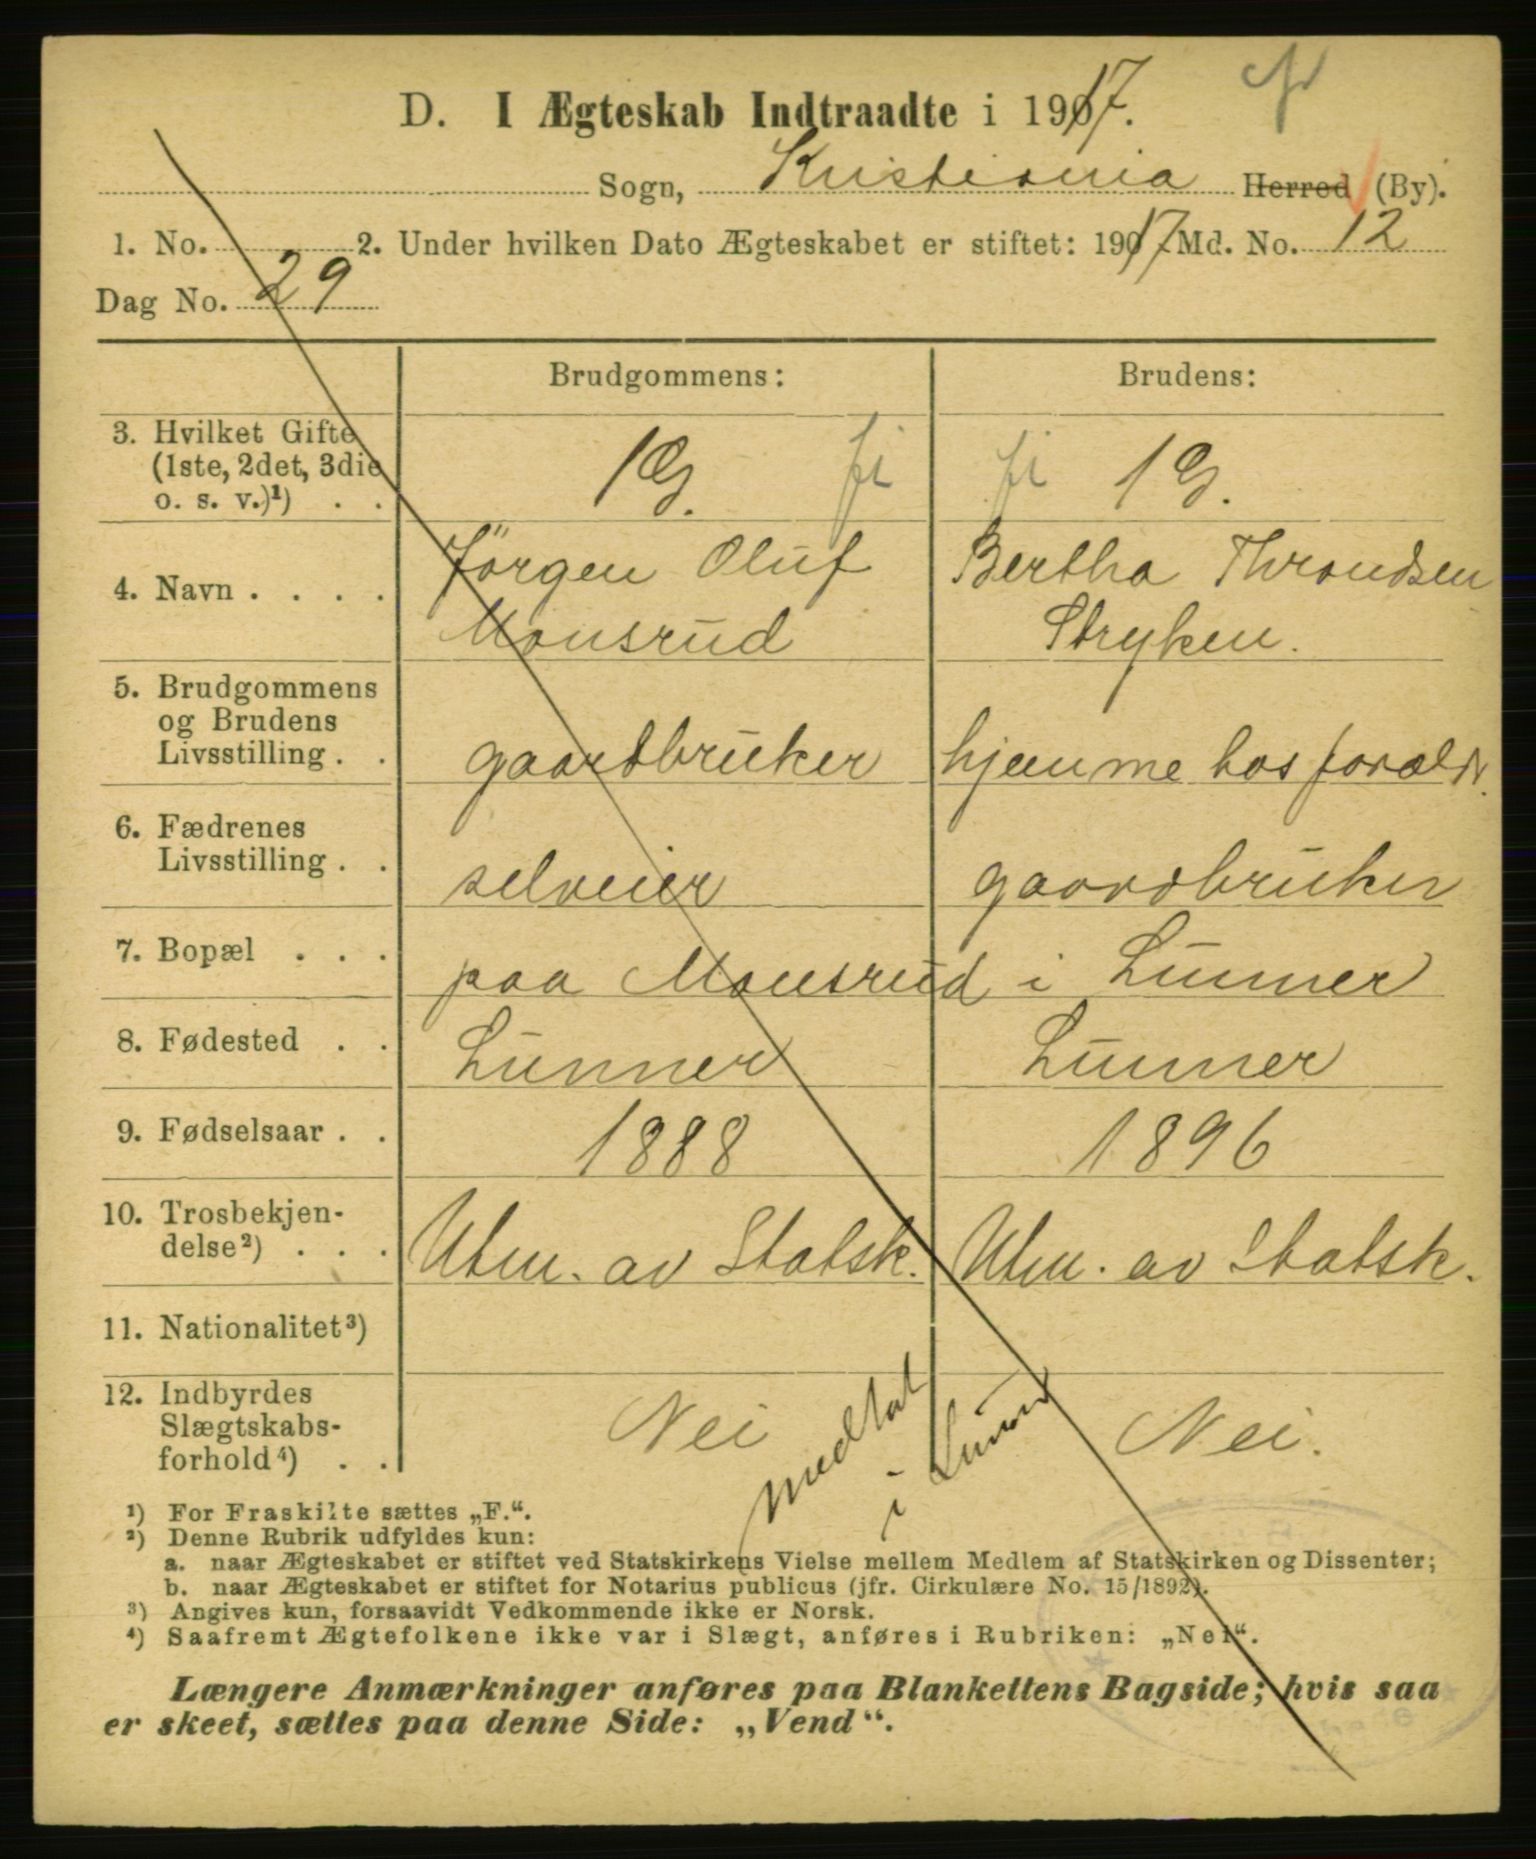 D. I Ægteskab Indtraadte i 1917.
Sogn, Kristiania Herred (By).
1. No. 2. Under hvilken Dato Ægteskabet er stiftet: 1917 Md. No. 12
Dag No. 29
Brudgommens: Brudens:
3. Hvilket Gifte (1ste, 2det, 3die o. s. v.)¹) . . 1 G. 1 G.
4. Navn . . . . Jörgen Oluf Bertha Throndsen
Monsrud Stryken.
5. Brudgommens
og Brudens
Livsstilling . . gaardbruker hjemme hos foræld.
6. Fædrenes
Livsstilling . . selveier gaardbruker
7. Bopæl . . . paa Monsrud i Lunner
8. Fødested . . Lunner Lunner
9. Fødselsaar . . 1888 1896
10. Trosbekjen-
delse²) . . . Utm. av Statsk. Utm. av Statsk.
11. Nationalitet³)
12. Indbyrdes
Slægtskabs-
forhold⁴) . . Nei Nei.
medtat
i Lunner
¹) For Fraskilte sættes „F.“.
²) Denne Rubrik udfyldes kun:
a. naar Ægteskabet er stiftet ved Statskirkens Vielse mellem Medlem af Statskirken og Dissenter;
b. naar Ægteskabet er stiftet for Notarius publicus (jfr. Cirkulære No. 15/1892).
³) Angives kun, forsaavidt Vedkommende ikke er Norsk.
⁴) Saafremt Ægtefolkene ikke var i Slægt, anføres i Rubriken: „Nei“.
Længere Anmærkninger anføres paa Blankettens Bagside; hvis saa
er skeet, sættes paa denne Side: „Vend“.